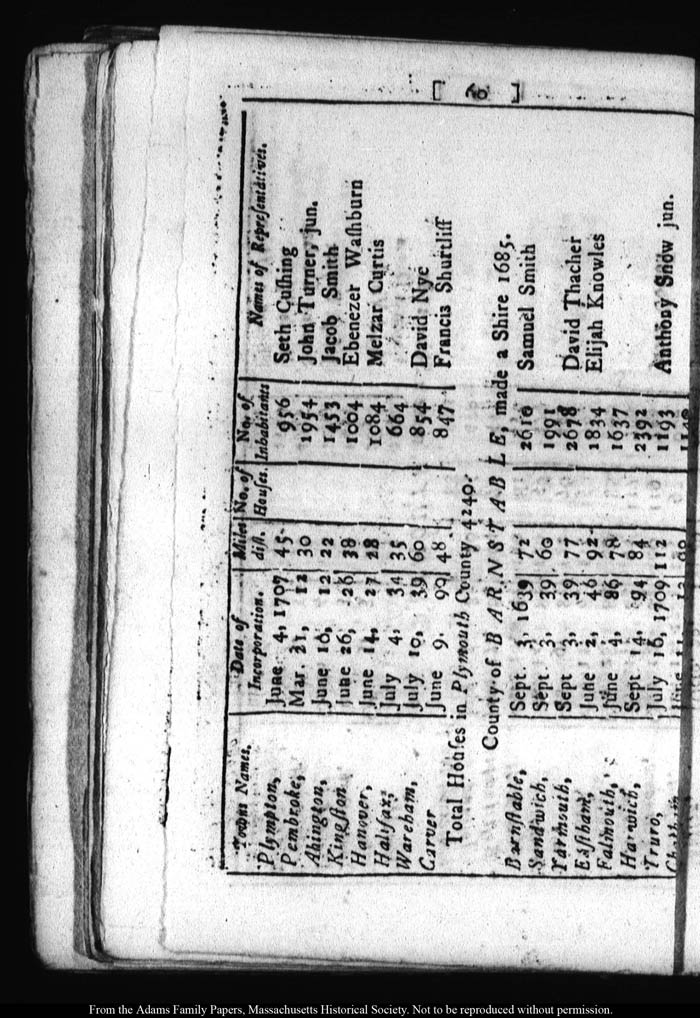 [ 6 ]
Towns Names. Date of Incorporation. Miles diſt. No. of Houſes. No. of Inhabitants Names of Repreſentatives.
Plympton, June 4, 1707 45 956 Seth Cuſhing
Pembroke, Mar. 21, 12 30 1954 John Turner, jun.
Abington, June 10, 12 22 1453 Jacob Smith
Kingſton June 26, 26 38 1004 Ebenezer Waſhburn
Hanover, June 14, 27 28 1084 Melzar Curtis
Halifax, July 4, 34 35 664
Wareham, July 10, 39 60 854 David Nye
Carver June 9. 90 48 847 Francis Shurtliff
Total Houſes in Plymouth County 4240.
County of BARNSTABLE, made a Shire 1685.
Barnſtable, Sept. 3, 1639 72 2610 Samuel Smith
Sandwich, Sept 3, 39 60 1991
Yarmouth, Sept 3, 39 77 2678 David Thacher
Eaſtham, June 2, 46 92 1834 Elijah Knowles
Falmouth, June 4, 86 78 1637
Harwich, Sept 14, 94 84 2392
Truro, July 16, 1709 112 1193 Anthony Snow jun.
From the Adams Family Papers, Massachusetts Historical Society. Not to be reproduced without permission.